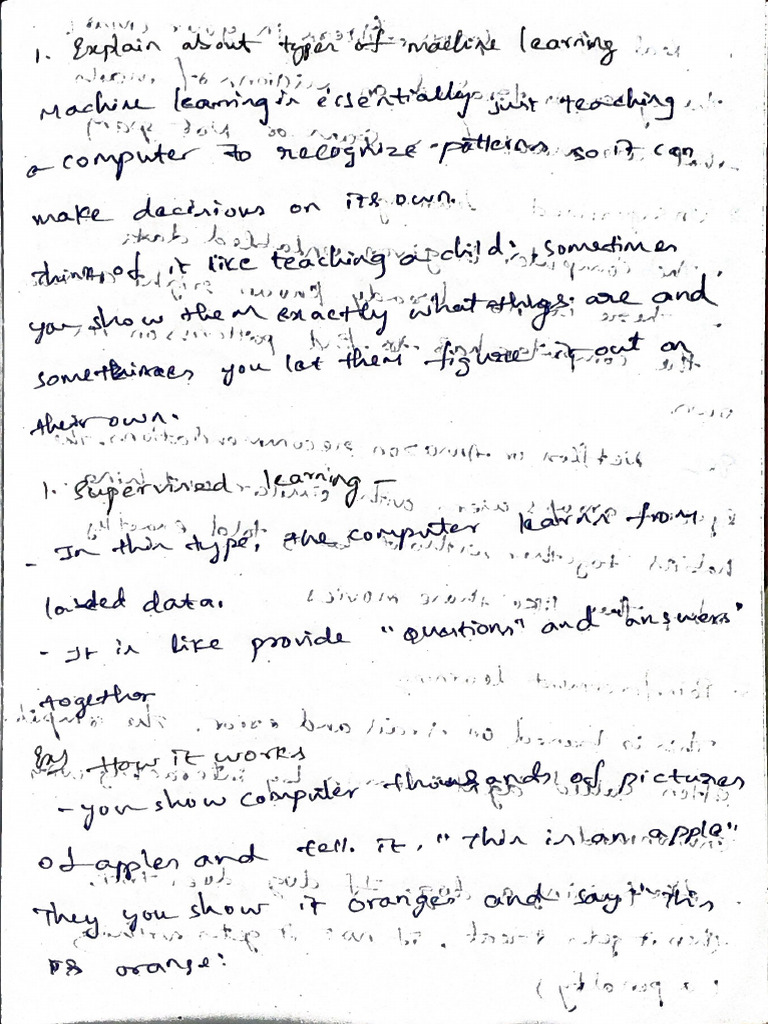 1. Explain about types of machine learning
Machine learning is essentially just teaching
a computer to recognize patterns so it can
make decisions on its own.
Think of it like teaching a child: sometimes
you show them exactly what things are and
sometimes you let them figure it out on
their own.
1. Supervised learning -
- In this type, the computer learns from
labeled data.
- It is like provide "questions" and "answers"
together
How it works
- you show computer thousands of pictures
of apples and tell it, "This is an apple"
They you show it oranges and say "this
is orange: